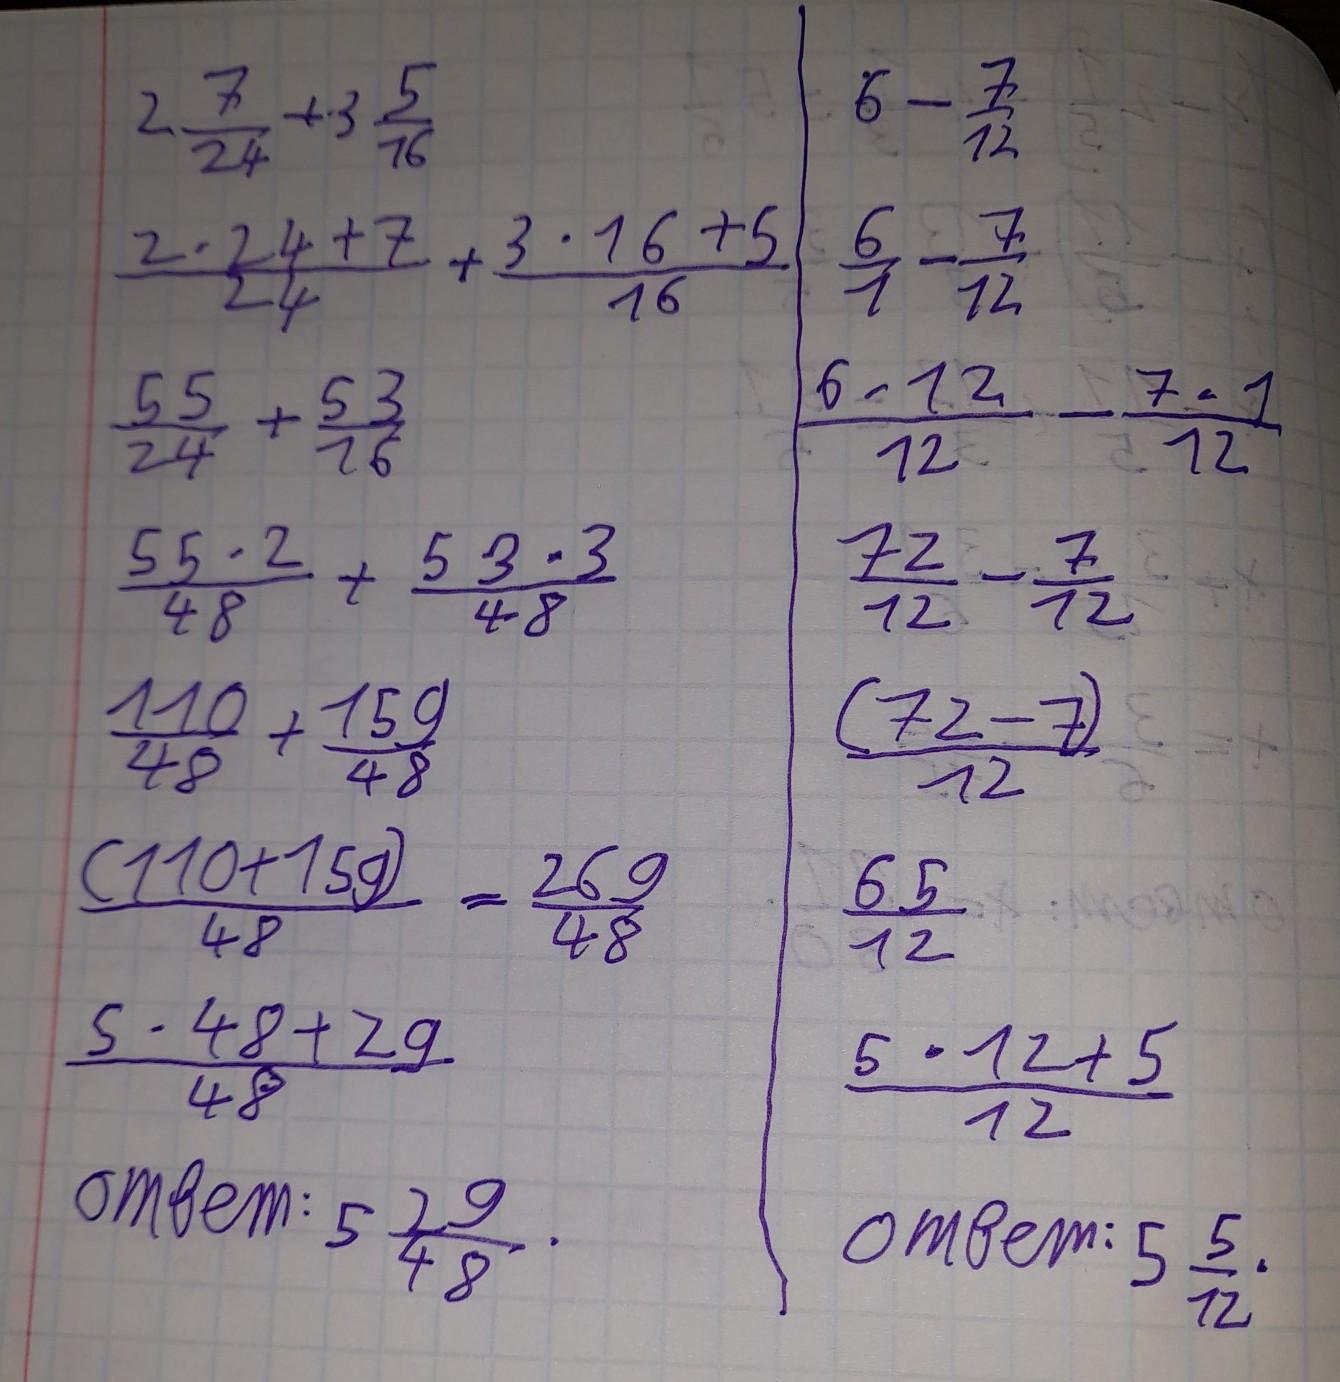 2 7/24 + 3 5/16
(2·24+7)/24 + (3·16+5)/16
55/24 + 53/16
55·2/48 + 53·3/48
110/48 + 159/48
(110+159)/48 = 269/48
(5·48+29)/48
ответ: 5 29/48.
6 - 7/12
6/1 - 7/12
6·12/12 - 7·1/12
72/12 - 7/12
(72-7)/12
65/12
(5·12+5)/12
ответ: 5 5/12.